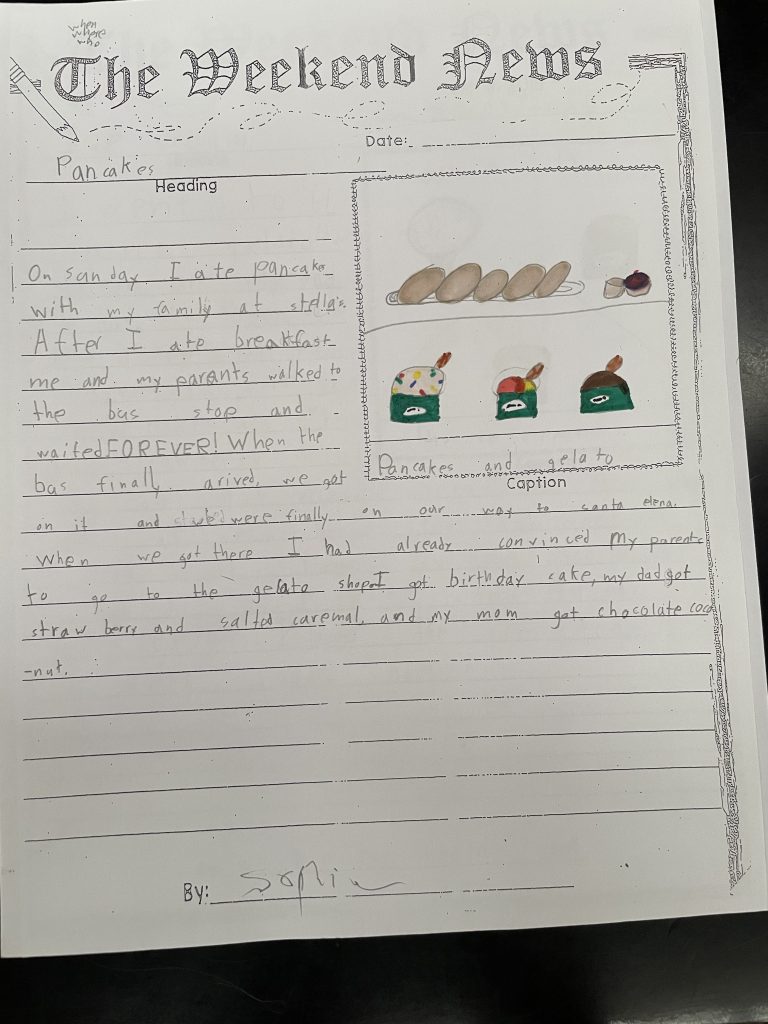 when
where
who
The Weekend News
Date:
Pancakes
Heading
On sanday I ate pancakes
with my family at stella's.
After I ate breakfast
me and my parents walked to
the bus stop and
waited FOREVER! When the
bus finally arived, we got
Pancakes and gelato
Caption
on it and were finally on our way to santa elena.
When we got there I had already convinced my parents
to go to the gelato shop. I got birthday cake, my dad got
straw berry and salted caremal, and my mom got chocolate coco
-nut.
By: Sophia